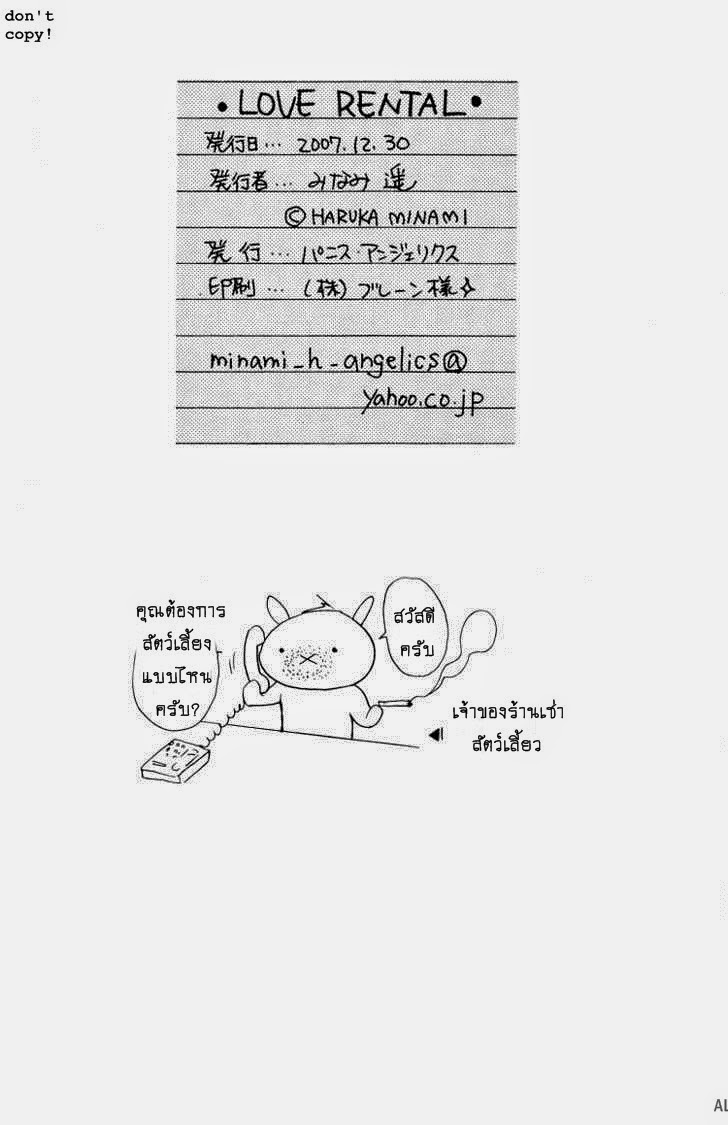 don't
copy!
• LOVE RENTAL •
発行日… 2007.12.30
発行者… みなみ 遥
© HARUKA MINAMI
発 行 … パニス・アンジェリクス
印刷 … (株) ブレーン様☆
minami_h_angelics@
yahoo.co.jp
สวัสดี
ครับ
คุณต้องการ
สัตว์เลี้ยง
แบบไหน
ครับ?
เจ้าของร้านเช่า
สัตว์เลี้ยว
AL